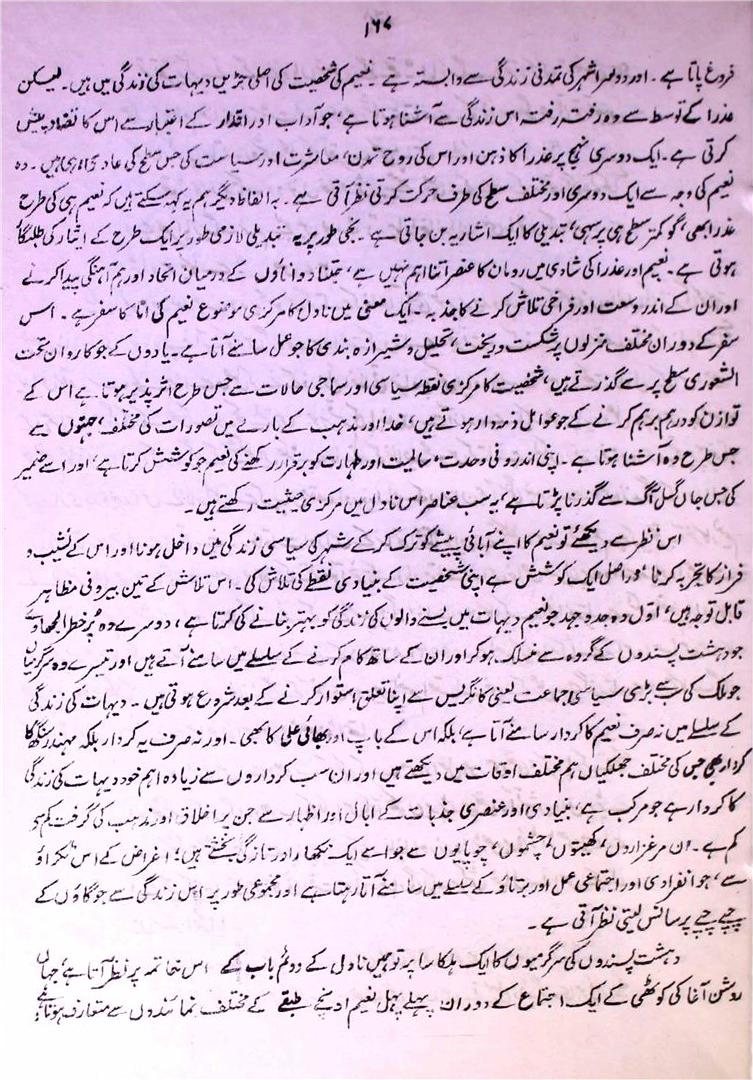 ۱۶۷
فروغ پاتا ہے ۔ اور دوسرا شہر کی تمدنی زندگی سے وابستہ ہے ۔ نعیم کی شخصیت کی اصلی جڑیں دیہات کی زندگی میں ہیں ۔ لیکن
عذرا کے توسط سے وہ رفتہ رفتہ اس زندگی سے آشنا ہوتا ہے ، جو آداب اور اقدار کے اعتبار سے اس کا تضاد پیش
کرتی ہے ۔ ایک دوسری نہج پر عذرا کا ذہن اور اس کی روح تمدن ، معاشرت اور سیاست کی جس سطح کی عادی رہی ہیں ۔ وہ
نعیم کی وجہ سے ایک دوسری اور مختلف سطح کی طرف حرکت کرتی نظر آتی ہے ۔ بہ الفاظ دیگر ہم یہ کہہ سکتے ہیں کہ نعیم ہی کی طرح
عذرا بھی ، گو کمتر سطح ہی پر سہی ، تبدیلی کا ایک اشاریہ بن جاتی ہے ۔ نجی طور پر یہ تبدیلی لازمی طور پر ایک طرح کے ایثار کی طلبگار
ہوتی ہے ۔ نعیم اور عذرا کی شادی میں رومان کا عنصر اتنا اہم نہیں ہے ، جتنا دو اناؤں کے درمیان اتحاد اور ہم آہنگی پیدا کرنے
اور ان کے اندر وسعت اور فراخی تلاش کرنے کا جذبہ ۔ ایک معنی میں ناول کا مرکزی موضوع نعیم کی انا کا سفر ہے ۔ اس
سفر کے دوران مختلف منزلوں پر شکست و ریخت ، تحلیل و شیرازہ بندی کا جو عمل سامنے آتا ہے ۔ یادوں کے جو کارواں تحت
الشعوری سطح پر سے گذرتے ہیں ، شخصیت کا مرکزی نقطہ سیاسی اور سماجی حالات سے جس طرح اثر پذیر ہوتا ہے اس کے
توازن کو درہم برہم کرنے کے جو عوامل ذمہ دار ہوتے ہیں ، خدا اور مذہب کے بارے میں تصورات کی مختلف جہتوں سے
جس طرح وہ آشنا ہوتا ہے ۔ اپنی اندرونی وحدت ، سالمیت اور طہارت کو برقرار رکھنے کی نعیم جو کوشش کرتا ہے ، اور اسے ضمیر
کی جس جاں گسل آگ سے گذرنا پڑتا ہے ، یہ سب عناصر اس ناول میں مرکزی حیثیت رکھتے ہیں ۔
اس نظر سے دیکھئے تو نعیم کا اپنے آبائی پیشے کو ترک کر کے شہر کی سیاسی زندگی میں داخل ہونا اور اس کے نشیب و
فراز کا تجربہ کرنا ، دراصل ایک کوشش ہے اپنی شخصیت کے بنیادی نقطے کی تلاش کی ۔ اس تلاش کے تین بیرونی مظاہر
قابل توجہ ہیں ، اول وہ جدوجہد جو نعیم دیہات میں بسنے والوں کی زندگی کو بہتر بنانے کی کرتا ہے ، دوسرے وہ پُر خطر الجھاوے
جو دہشت پسندوں کے گروہ سے منسلک ہو کر اور ان کے ساتھ کام کرنے کے سلسلے میں سامنے آتے ہیں اور تیسرے وہ سرگرمیاں
جو ملک کی سب سے بڑی سیاسی جماعت یعنی کانگریس سے اپنا تعلق استوار کرنے کے بعد شروع ہوتی ہیں ۔ دیہات کی زندگی
کے سلسلے میں نہ صرف نعیم کا کردار سامنے آتا ہے ، بلکہ اس کے باپ اور بھائی علی کا بھی ۔ اور نہ صرف یہ کردار بلکہ مہندر سنگھ کا
کردار بھی جس کی مختلف جھلکیاں ہم مختلف اوقات میں دیکھتے ہیں اور ان سب کرداروں سے زیادہ اہم خود دیہات کی زندگی
کا کردار ہے جو مرکب ہے ، بنیادی اور عنصری جذبات کے ابال اور اظہار سے جن پر اخلاق اور مذہب کی گرفت کم سے
کم ہے ۔ ان مرغزاروں ، کھیتوں ، چشموں ، چوپایوں سے جو اسے ایک نکھار اور تازگی بخشتے ہیں ؛ اغراض کے اس ٹکراؤ
سے ، جو انفرادی اور اجتماعی عمل اور برتاؤ کے سلسلے میں سامنے آتا رہتا ہے اور مجموعی طور پر اس زندگی سے جو گاؤں کے
چپے چپے پر سانس لیتی نظر آتی ہے ۔
دہشت پسندوں کی سرگرمیوں کا ایک ہلکا سا پر تو ہمیں ناول کے دوئم باب کے اس خاتمہ پر نظر آتا ہے ، جہاں
روشن آغا کی کوٹھی کے ایک اجتماع کے دوران پہلے پہل نعیم اونچے طبقے کے مختلف نمائندوں سے متعارف ہوتا ہے ؛